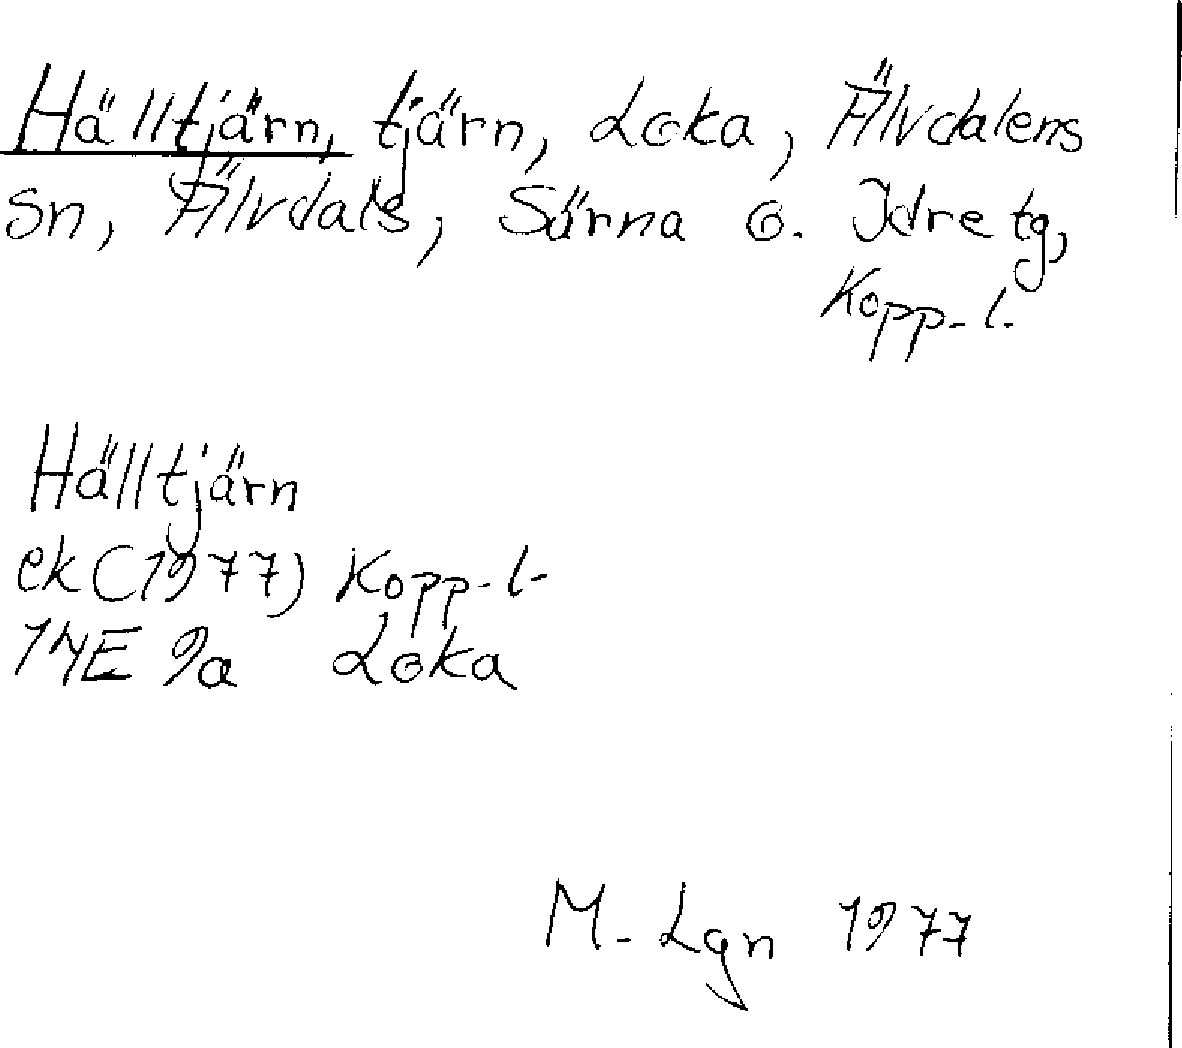 Hälltjärn, tjärn, Loka, Älvdalens
sn, Älvdals, Särna o. Idre tg,
Kopp. l.
Hälltjärn
ek (1977) Kopp. l.
14E 9a Loka
M. Lgn 1977